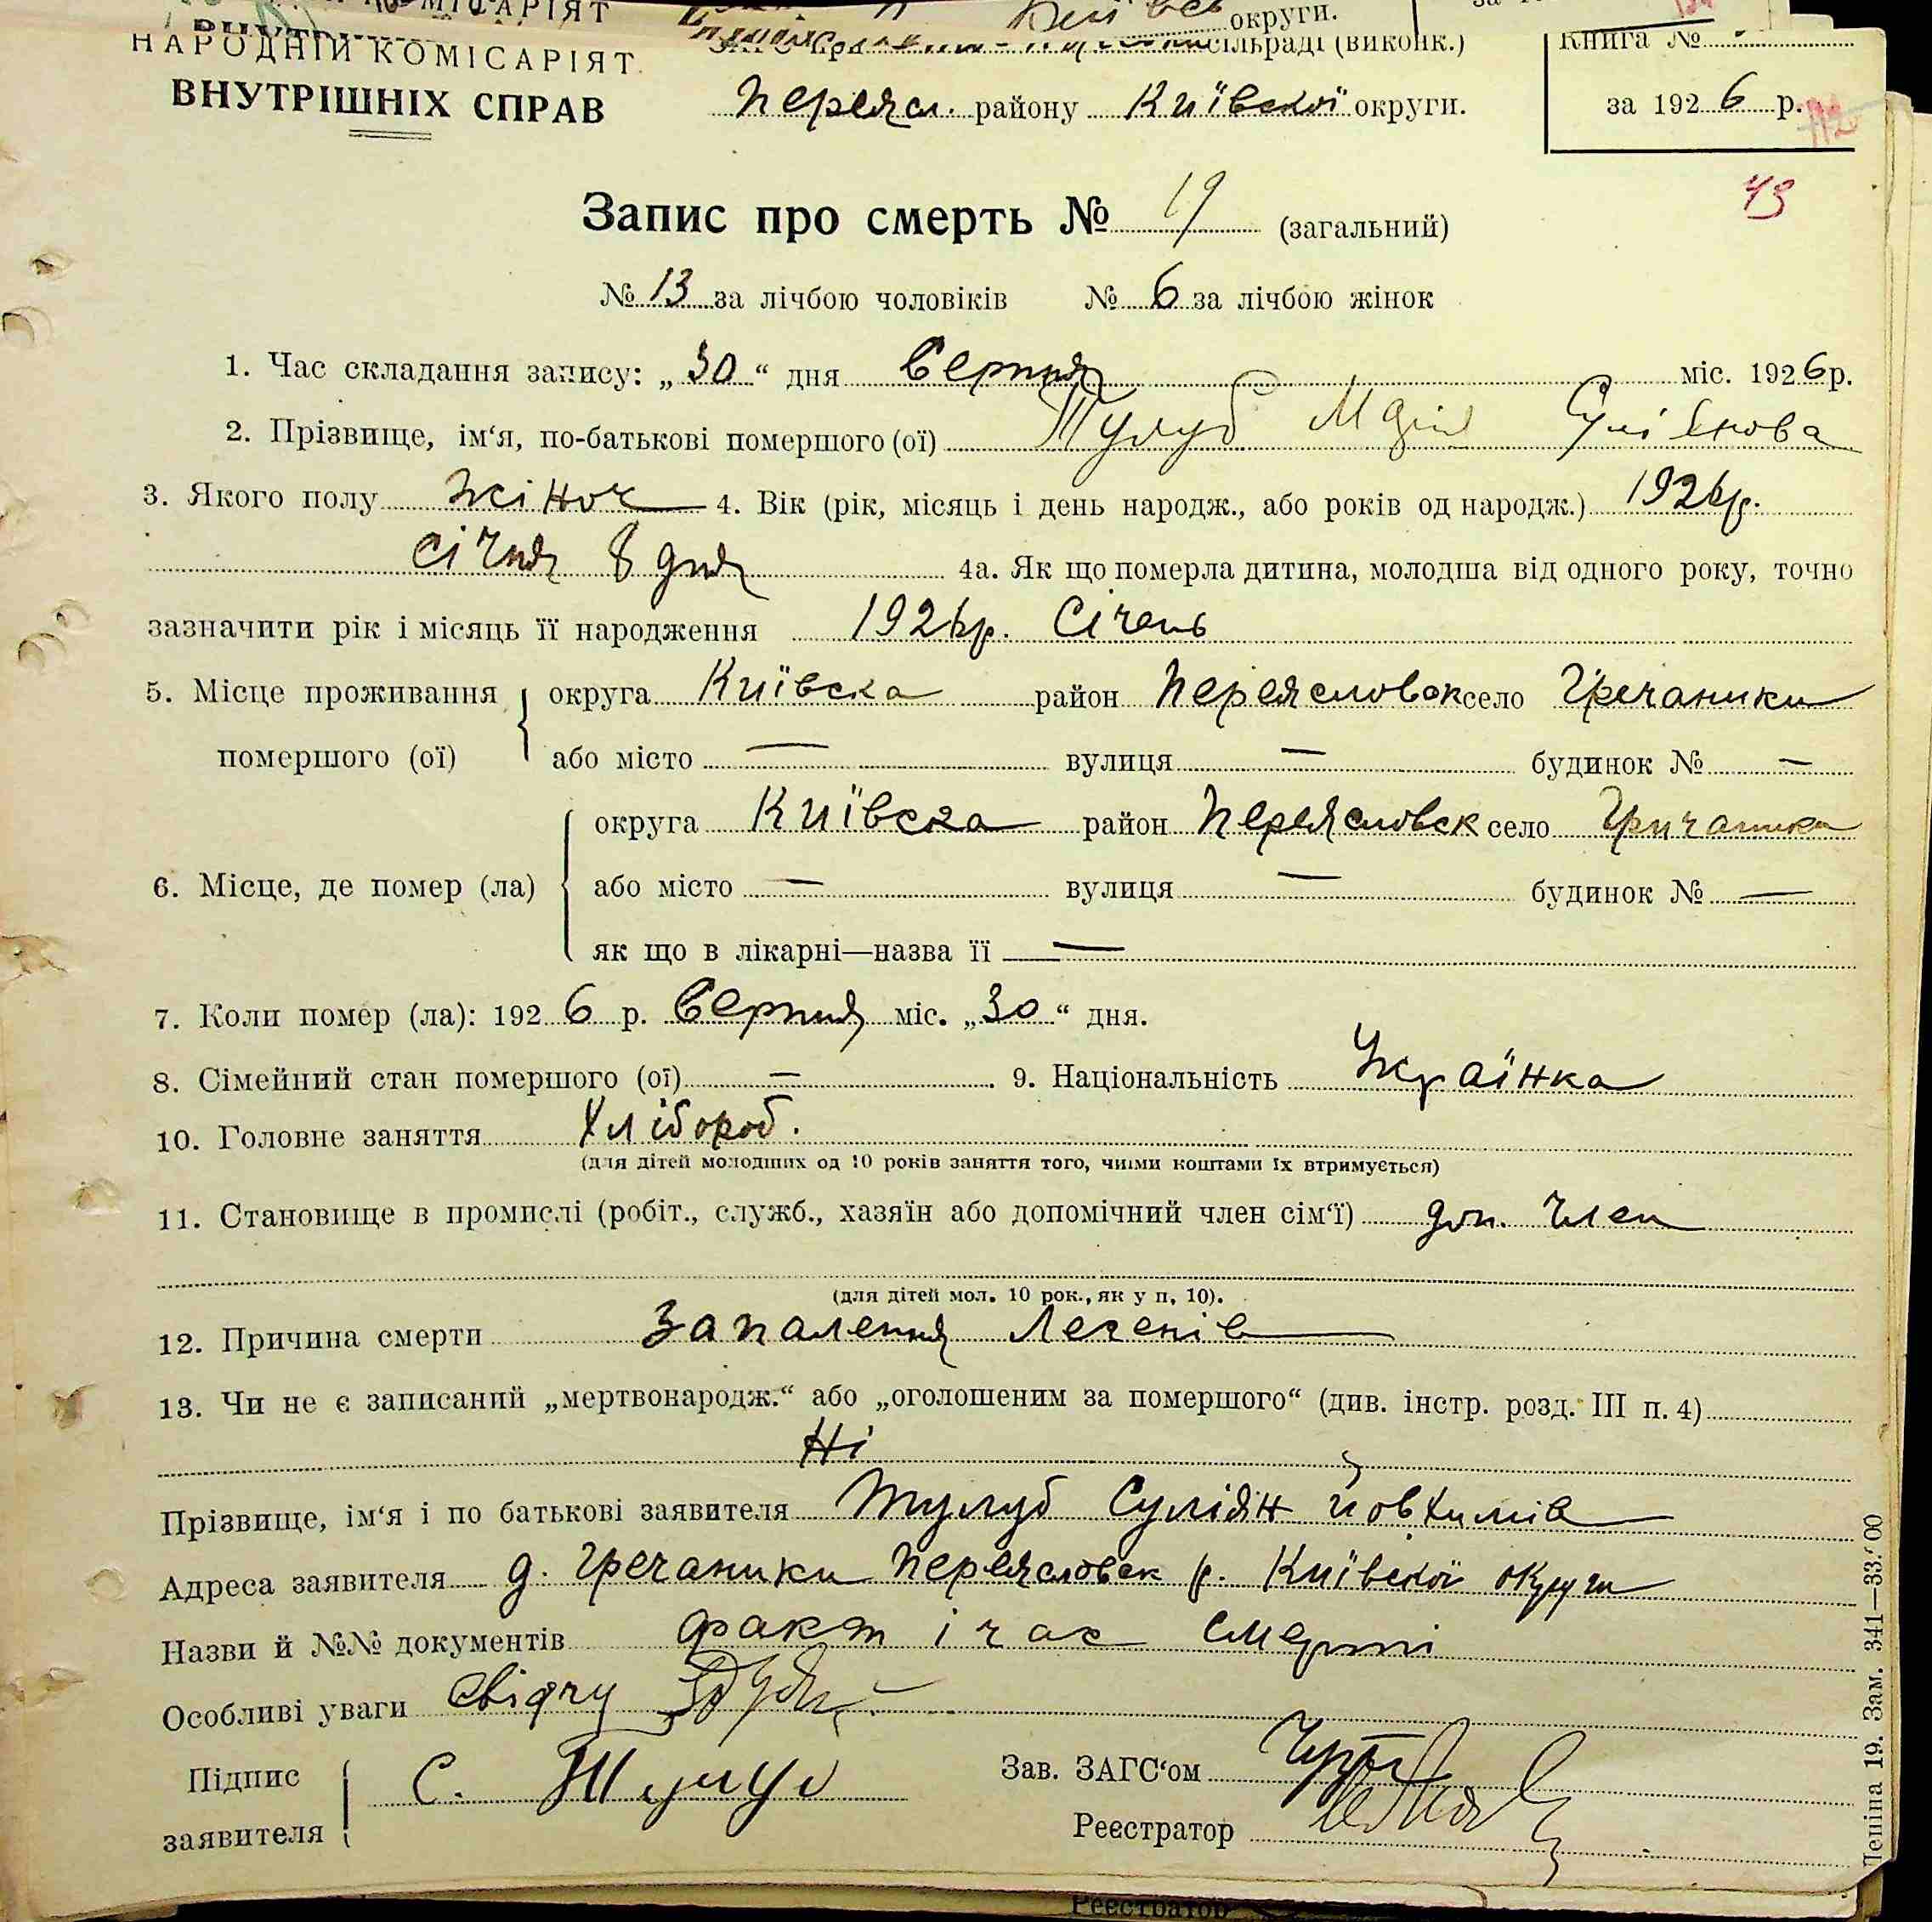 НАРОДНІЙ КОМІСАРІЯТ
ВНУТРІШНІХ СПРАВ
округи.
сільраді (виконк.)
Переясл. району Київської округи.
Книга №
за 1926 р.
43
Запис про смерть № 19 (загальний)
№ 13 за лічбою чоловіків № 6 за лічбою жінок
1. Час складання запису: „30“ дня Серпня міс. 1926 р.
2. Прізвище, ім‘я, по-батькові помершого (ої) Тулуб Марія Суліянова
3. Якого полу жіноч 4. Вік (рік, місяць і день народж., або років од народж.) 1926р.
січня 8 дня 4а. Як що померла дитина, молодша від одного року, точно
зазначити рік і місяць її народження 1926р. Січень
5. Місце проживання округа Київска район Переясловск село Гречаники
помершого (ої) або місто — вулиця — будинок № —
округа Київска район Переясловск село Гричаники
6. Місце, де помер (ла) або місто — вулиця — будинок № —
як що в лікарні—назва її —
7. Коли помер (ла): 1926 р. Серпня міс. „30“ дня.
8. Сімейний стан помершого (ої) — 9. Національність Українка
10. Головне заняття Хлібороб.
(для дітей молодших од 10 років заняття того, чиїми коштами їх втримується)
11. Становище в промислі (робіт., служб., хазяїн або допомічний член сім‘ї) доп. член
(для дітей мол. 10 рок., як у п, 10).
12. Причина смерти Запалення Легенів
13. Чи не є записаний „мертвонародж.“ або „оголошеним за помершого“ (див. інстр. розд. III п. 4)
Ні
Прізвище, ім‘я і по батькові заявителя Тулуб Суліян Йовхимів
Адреса заявителя д. Гречаники Переясловск р. Київської округи
Назви й №№ документів факт і час смерти
Особливі уваги свідчу
Підпис заявителя С. Тулуб
Зав. ЗАГС‘ом
Реєстратор
Леніна 19. Зам. 341—33.000
Реєстратор